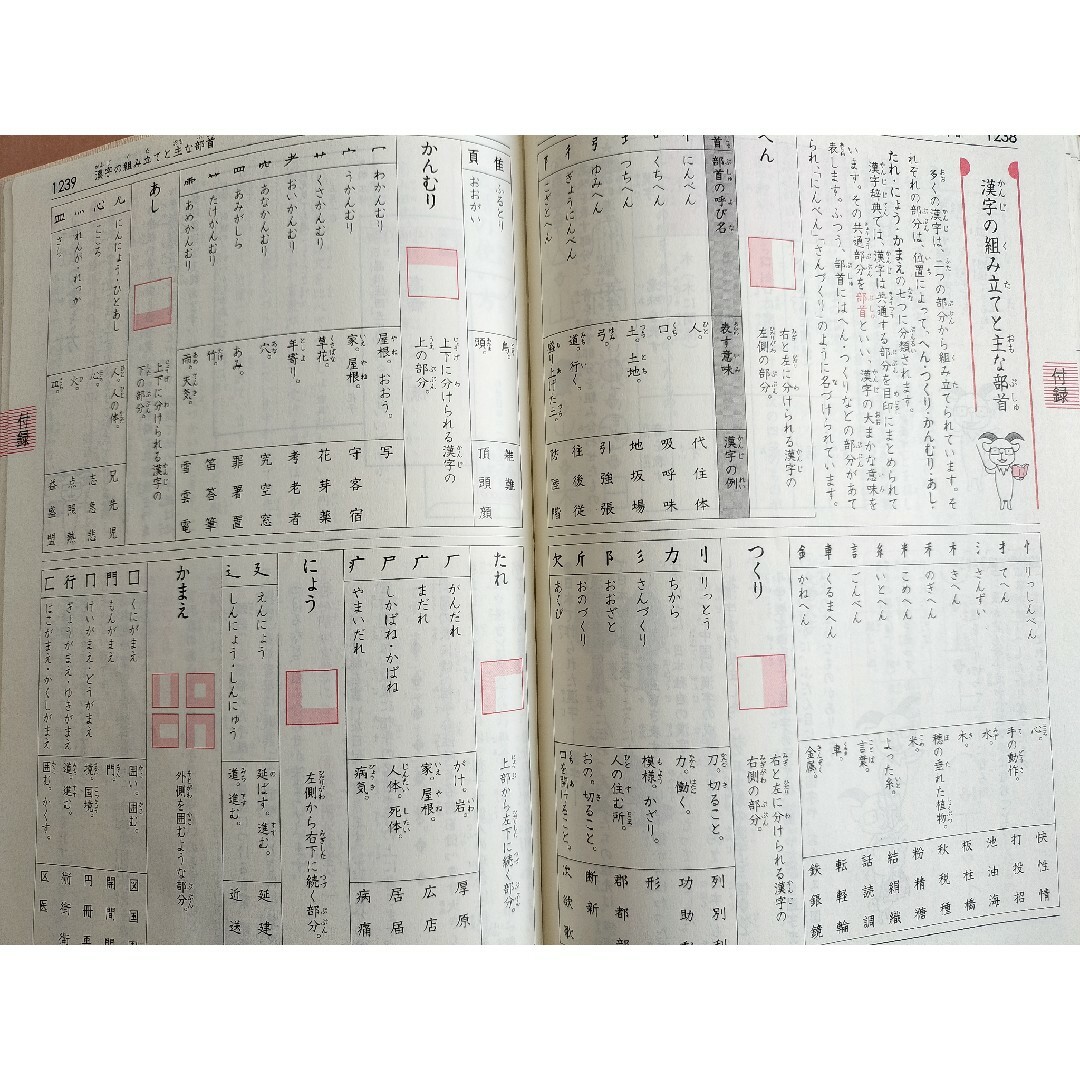 1238
付録
漢字の組み立てと主な部首
多くの漢字は、二つの部分から組み立てられています。そ
れぞれの部分は、位置によって、へん・つくり・かんむり・あし・
たれ・にょう・かまえの七つに分類されます。
漢字辞典では、漢字は共通する部分を目印にまとめられて
います。その共通部分を部首といい、漢字の大まかな意味を
表します。ふつう、部首にはへん・つくりなどの部分があて
られ、「にんべん」「さんづくり」のように名づけられています。
へん
右と左に分けられる漢字の
左側の部分。
首 部首の呼び名 表す意味 漢字の例
にんべん 人。 代 住 体
くちへん 口。 吸 呼 味
つちへん 土。土地。 地 坂 場
弓 ゆみへん 弓。 引 強 張
彳 ぎょうにんべん 道。行く。 往 後 従
こざとへん
忄 りっしんべん 心。 快 性 情
扌 てへん 手の動作。 打 投 招
氵 さんずい 水。 池 油 海
木 きへん 木。 板 柱 橋
禾 のぎへん 穂の垂れた植物。 秋 税 種
米 こめへん 米。 粉 精 糖
糸 いとへん よった糸。 結 絹 織
言 ごんべん 言葉。 話 読 調
車 くるまへん 車。 転 軽 輪
金 かねへん 金属。 鉄 銀 鏡
つくり
右と左に分けられる漢字の
右側の部分。
刂 りっとう 刀。切ること。 列 別
力 ちから 力。働く。 功 助
彡 さんづくり 模様。かざり。 形
阝 おおざと 人の住む所。 郡 都 部
斤 おのづくり おの。切ること。 断 新
欠 あくび 口を開けること。 次 欲 歌
1239 漢字の組み立てと主な部首
付録
隹 ふるとり 鳥。 雑 難
頁 おおがい 頭。 頂 頭 顔
かんむり
上下に分けられる漢字の
上の部分。
冖 わかんむり おおう。 写
宀 うかんむり 家。屋根。 守 客 宿
艹 くさかんむり 草花。 花 芽 薬
耂 おいかんむり 年寄り。 考 老 者
穴 あなかんむり 穴。 究 空 窓
罒 あみがしら あみ。 罪 署 置
⺮ たけかんむり 竹。 笛 答 筆
雨 あめかんむり 雨。天気。 雪 雲 電
あし
上下に分けられる漢字の
下の部分。
儿 にんにょう・ひとあし 人。人の体。 兄 先 児
心 こころ 心。 志 急 悲
灬 れんが・れっか 火。 点 照 熱
皿 さら 皿。 益 盛 盟
たれ
上部から左下に続く部分。
厂 がんだれ がけ。岩。 厚 原
广 まだれ 家。屋根。 広 店
尸 しかばね・かばね 人体。死体。 居 届
疒 やまいだれ 病気。 病 痛
にょう
左側から右下に続く部分。
廴 えんにょう 延ばす。進む。 延 建
⻌ しんにょう・しんにゅう 道。進む。 近 送
かまえ
外側を囲むような部分。
囗 くにがまえ 囲い。囲む。 図 国
門 もんがまえ 門。 開 間
冂 けいがまえ・どうがまえ 境。国境。 円 冊 再
行 ぎょうがまえ・ゆきがまえ 道。進む。 術 街
匚 はこがまえ・かくしがまえ 囲む。かくす。 区 医